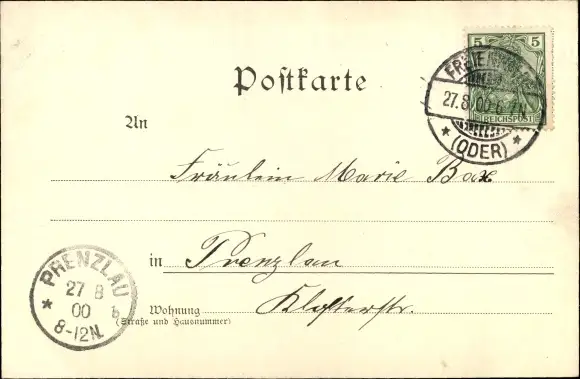 5 5
REICHSPOST
27.8.00.6-7N.
* (ODER) *
Postkarte
An
Fräulein Marie Bax
in Prenzlau
Wohnung Klosterstr.
(Straße und Hausnummer)
PRENZLAU
27 8
* 00 b
8-12N.